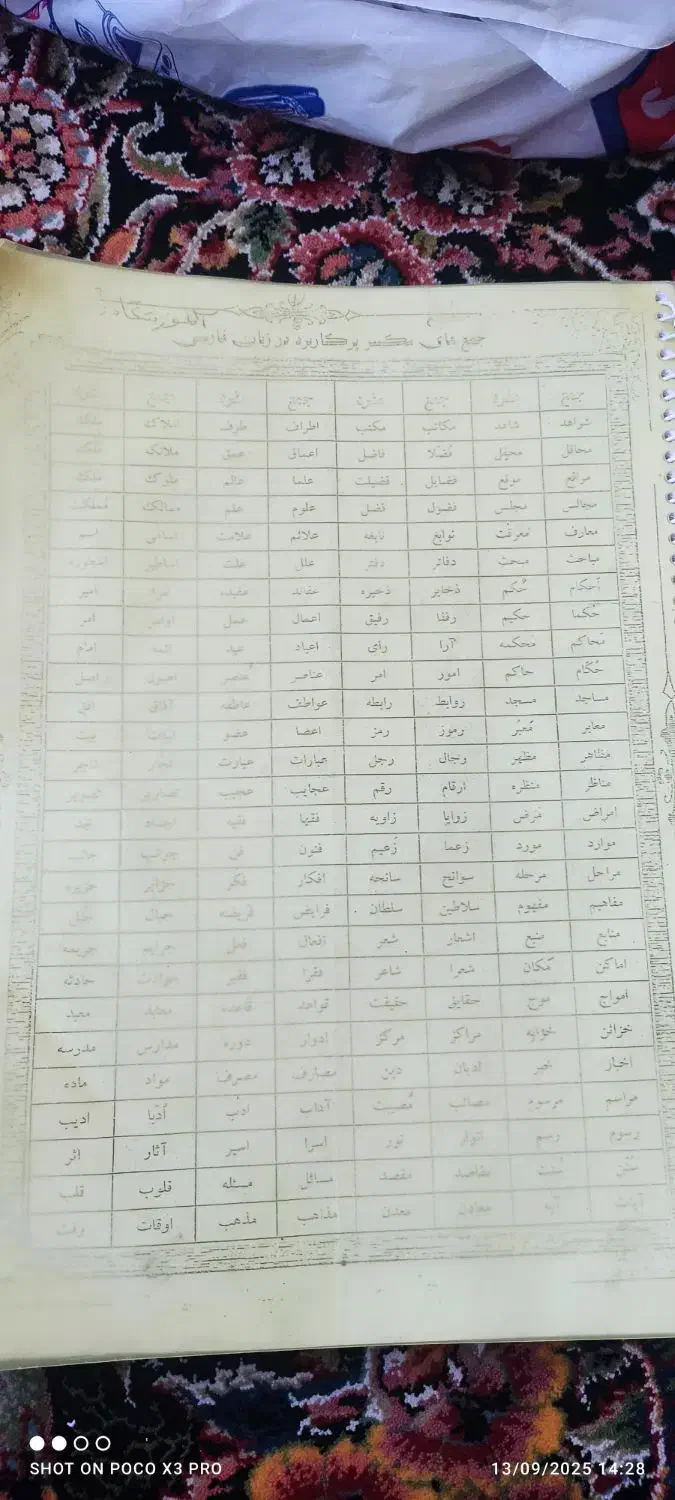 جمع های مکسر پرکاربرد در زبان فارسی
جمع مفرد جمع مفرد جمع مفرد جمع مفرد
شواهد شاهد مکاتب مکتب اطراف طرف املاک ملک
محافل محفل فُضَلا فاضل اعماق عمق ملائک مَلَک
مواقع موقع فضایل فضیلت علما عالم ملوک ملک
مجالس مجلس فضول فضل علوم علم ممالک مملکت
معارف معرفت نوابغ نابغه علائم علامت اسامی اسم
مباحث مبحث دفاتر دفتر علل علت اساطیر اسطوره
اَحکام حُکم ذخایر ذخیره عقاید عقیده امرا امیر
حُکَما حکیم رفقا رفیق اعمال عمل اوامر امر
مَحاکم محکمه آرا رای اعیاد عید ائمه امام
حُکّام حاکم امور امر عناصر عُنصر اصول اصل
مساجد مسجد روابط رابطه عواطف عاطفه آفاق افق
معابر مَعبَر رموز رمز اعضا عضو ابیات بیت
مظاهر مظهر رجال رجل عبارات عبارت تجار تاجر
مناظر منظره ارقام رقم عجایب عجیب تصاویر تصویر
امراض مَرَض زوایا زاویه فقها فقیه
موارد مورد زعما زُعیم فنون فن جوانب جانب
مراحل مرحله سوانح سانحه افکار فکر جزایر جزیره
مفاهیم مفهوم سلاطین سلطان فرایض فریضه جبال جَبَل
منابع منبع اشعار شعر افعال فعل جرایم جریمه
اماکن مَکان شعرا شاعر فقرا فقیر حوادث حادثه
امواج موج حقایق حقیقت قواعد قاعده معابد معبد
خزائن خزانه مراکز مرکز ادوار دوره مدارس مدرسه
اخبار خبر ادیان دین مصارف مصرف مواد ماده
مراسم مرسوم مصائب مُصیبت آداب ادب اُدَبا ادیب
رسوم رسم انوار نور اسرا اسیر آثار اثر
سُنَن سُنت مقاصد مقصد مسائل مسئله قلوب قلب
آیات آیه معادن معدن مذاهب مذهب اوقات وقت
SHOT ON POCO X3 PRO
13/09/2025 14:28